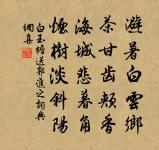 避暑白雲鄉
茶甘齒頰香
海城悲暮角
煙樹淡斜陽
白玉蟾送郭進之詞典
網集